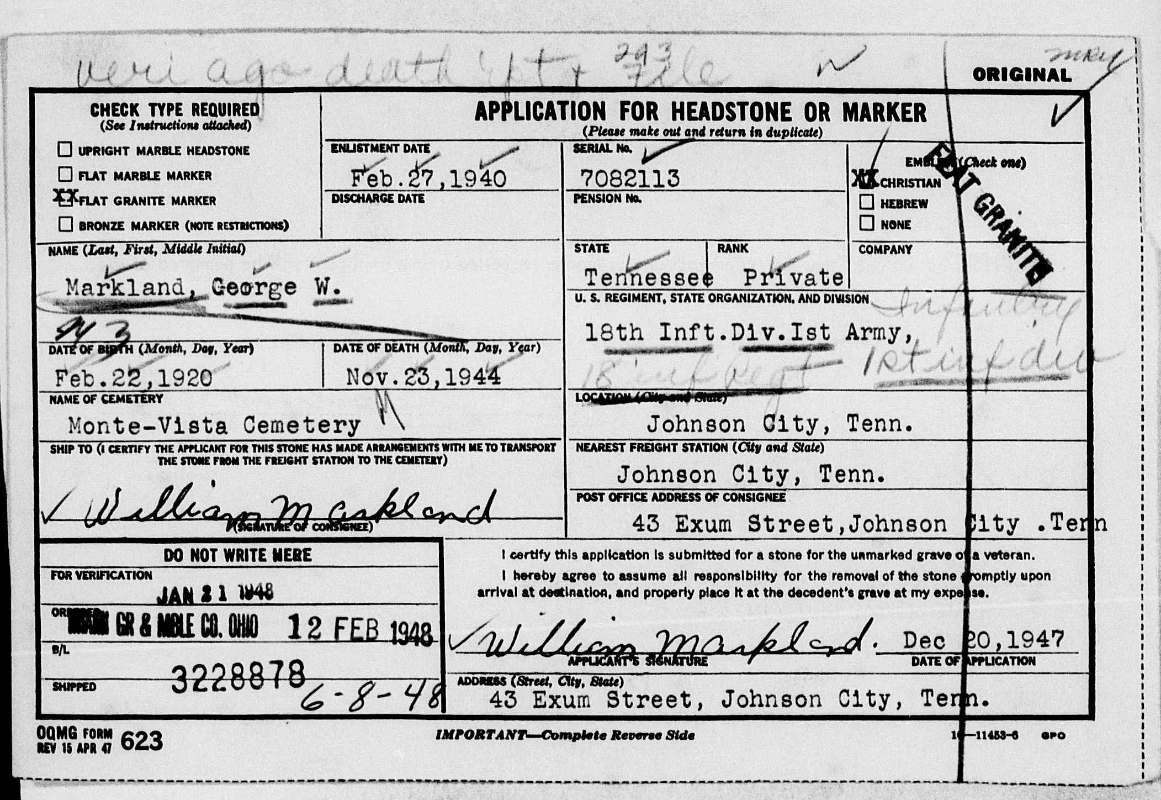 veri ago death rpt + 293 File
ORIGINAL
CHECK TYPE REQUIRED
(See Instructions attached)
UPRIGHT MARBLE HEADSTONE
FLAT MARBLE MARKER
XX FLAT GRANITE MARKER
BRONZE MARKER (NOTE RESTRICTIONS)
APPLICATION FOR HEADSTONE OR MARKER
(Please make out and return in duplicate)
ENLISTMENT DATE
Feb.27,1940
DISCHARGE DATE
SERIAL No.
7082113
PENSION No.
EMBLEM (Check one)
XX CHRISTIAN
HEBREW
NONE
FLAT GRANITE
NAME (Last, First, Middle Initial)
Markland, George W.
STATE
Tennessee
RANK
Private
COMPANY
U. S. REGIMENT, STATE ORGANIZATION, AND DIVISION
Infantry
18th Inft.Div.Ist Army,
18 inf regt 1st inf div
DATE OF BIRTH (Month, Day, Year)
Feb.22,1920
DATE OF DEATH (Month, Day, Year)
Nov.23,1944
NAME OF CEMETERY
Monte-Vista Cemetery
LOCATION (City and State)
Johnson City, Tenn.
SHIP TO (I CERTIFY THE APPLICANT FOR THIS STONE HAS MADE ARRANGEMENTS WITH ME TO TRANSPORT
THE STONE FROM THE FREIGHT STATION TO THE CEMETERY)
William Markland
(SIGNATURE OF CONSIGNEE)
NEAREST FREIGHT STATION (City and State)
Johnson City, Tenn.
POST OFFICE ADDRESS OF CONSIGNEE
43 Exum Street,Johnson City .Tenn
DO NOT WRITE HERE
FOR VERIFICATION
JAN 21 1948
ORDERED
GR & MBLE CO. OHIO 12 FEB 1948
B/L
3228878
SHIPPED
6-8-48
I certify this application is submitted for a stone for the unmarked grave of a veteran.
I hereby agree to assume all responsibility for the removal of the stone promptly upon
arrival at destination, and properly place it at the decedent's grave at my expense.
William Markland. Dec 20,1947
APPLICANT'S SIGNATURE DATE OF APPLICATION
ADDRESS (Street, City, State)
43 Exum Street, Johnson City, Tenn.
OQMG FORM
REV 15 APR 47 623
IMPORTANT—Complete Reverse Side
16—11453-6 GPO